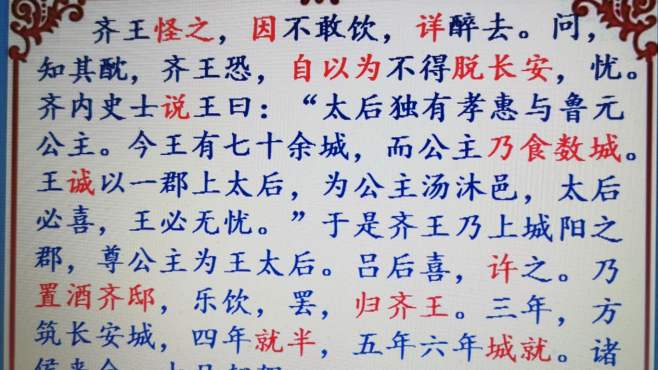 齐王怪之，因不敢饮，详醉去。问，
知其酖，齐王恐，自以为不得脱长安，忧。
齐内史士说王曰：“太后独有孝惠与鲁元
公主。今王有七十余城，而公主乃食数城。
王诚以一郡上太后，为公主汤沐邑，太后
必喜，王必无忧。”于是齐王乃上城阳之
郡，尊公主为王太后。吕后喜，许之。乃
置酒齐邸，乐饮，罢，归齐王。三年，方
筑长安城，四年就半，五年六年城就。诸